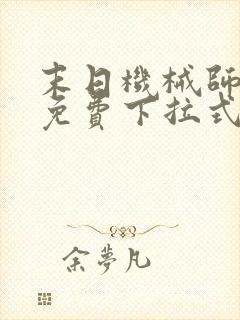 末日機械師
免費下拉式
余夢凡